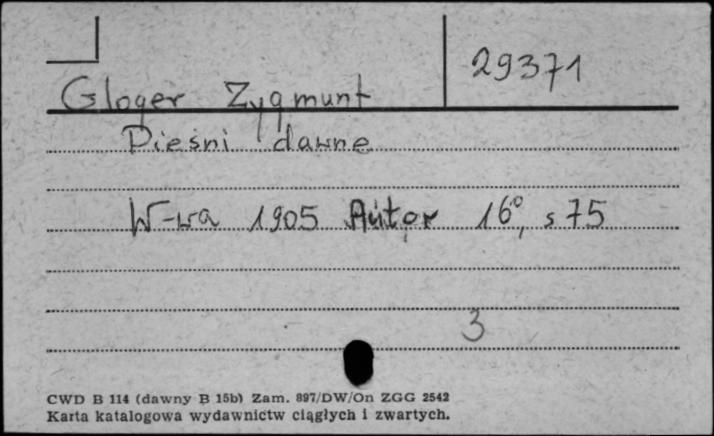 29371
Gloger Zygmunt
Pieśni dawne
W-wa 1905 Autor 16°, s 75
3
CWD B 114 (dawny B 15b) Zam. 897/DW/On ZGG 2542
Karta katalogowa wydawnictw ciągłych i zwartych.